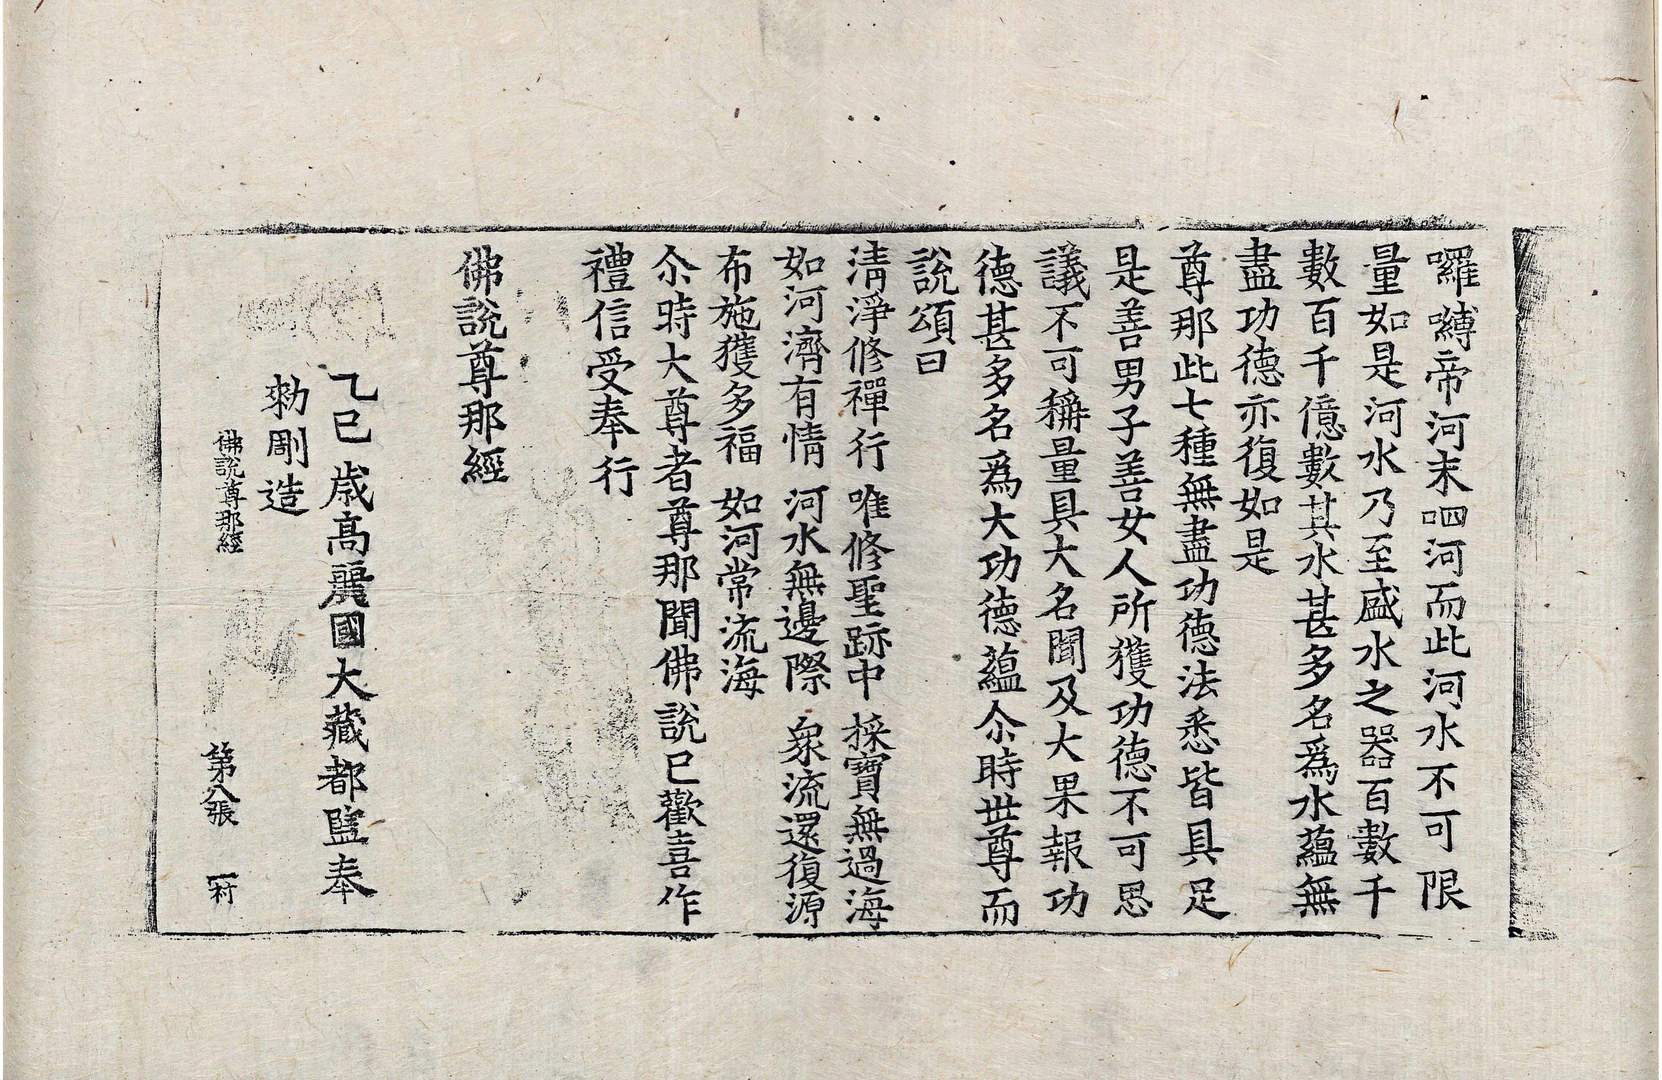 囉嚩帝河末呬河而此河水不可限
量如是河水乃至盛水之器百數千
數百千億數其水甚多名爲水蘊無
盡功德亦復如是
尊那此七種無盡功德法悉皆具足
是善男子善女人所獲功德不可思
議不可稱量具大名聞及大果報功
德甚多名爲大功德蘊尒時世尊而
說頌曰
清淨修禪行 唯修聖跡中 採寶無過海
如河濟有情 河水無邊際 衆流還復源
布施獲多福 如河常流海
尒時大尊者尊那聞佛說已歡喜作
禮信受奉行
佛說尊那經
乙巳歲高麗國大藏都監奉
勅彫造
佛說尊那經 第八張 村